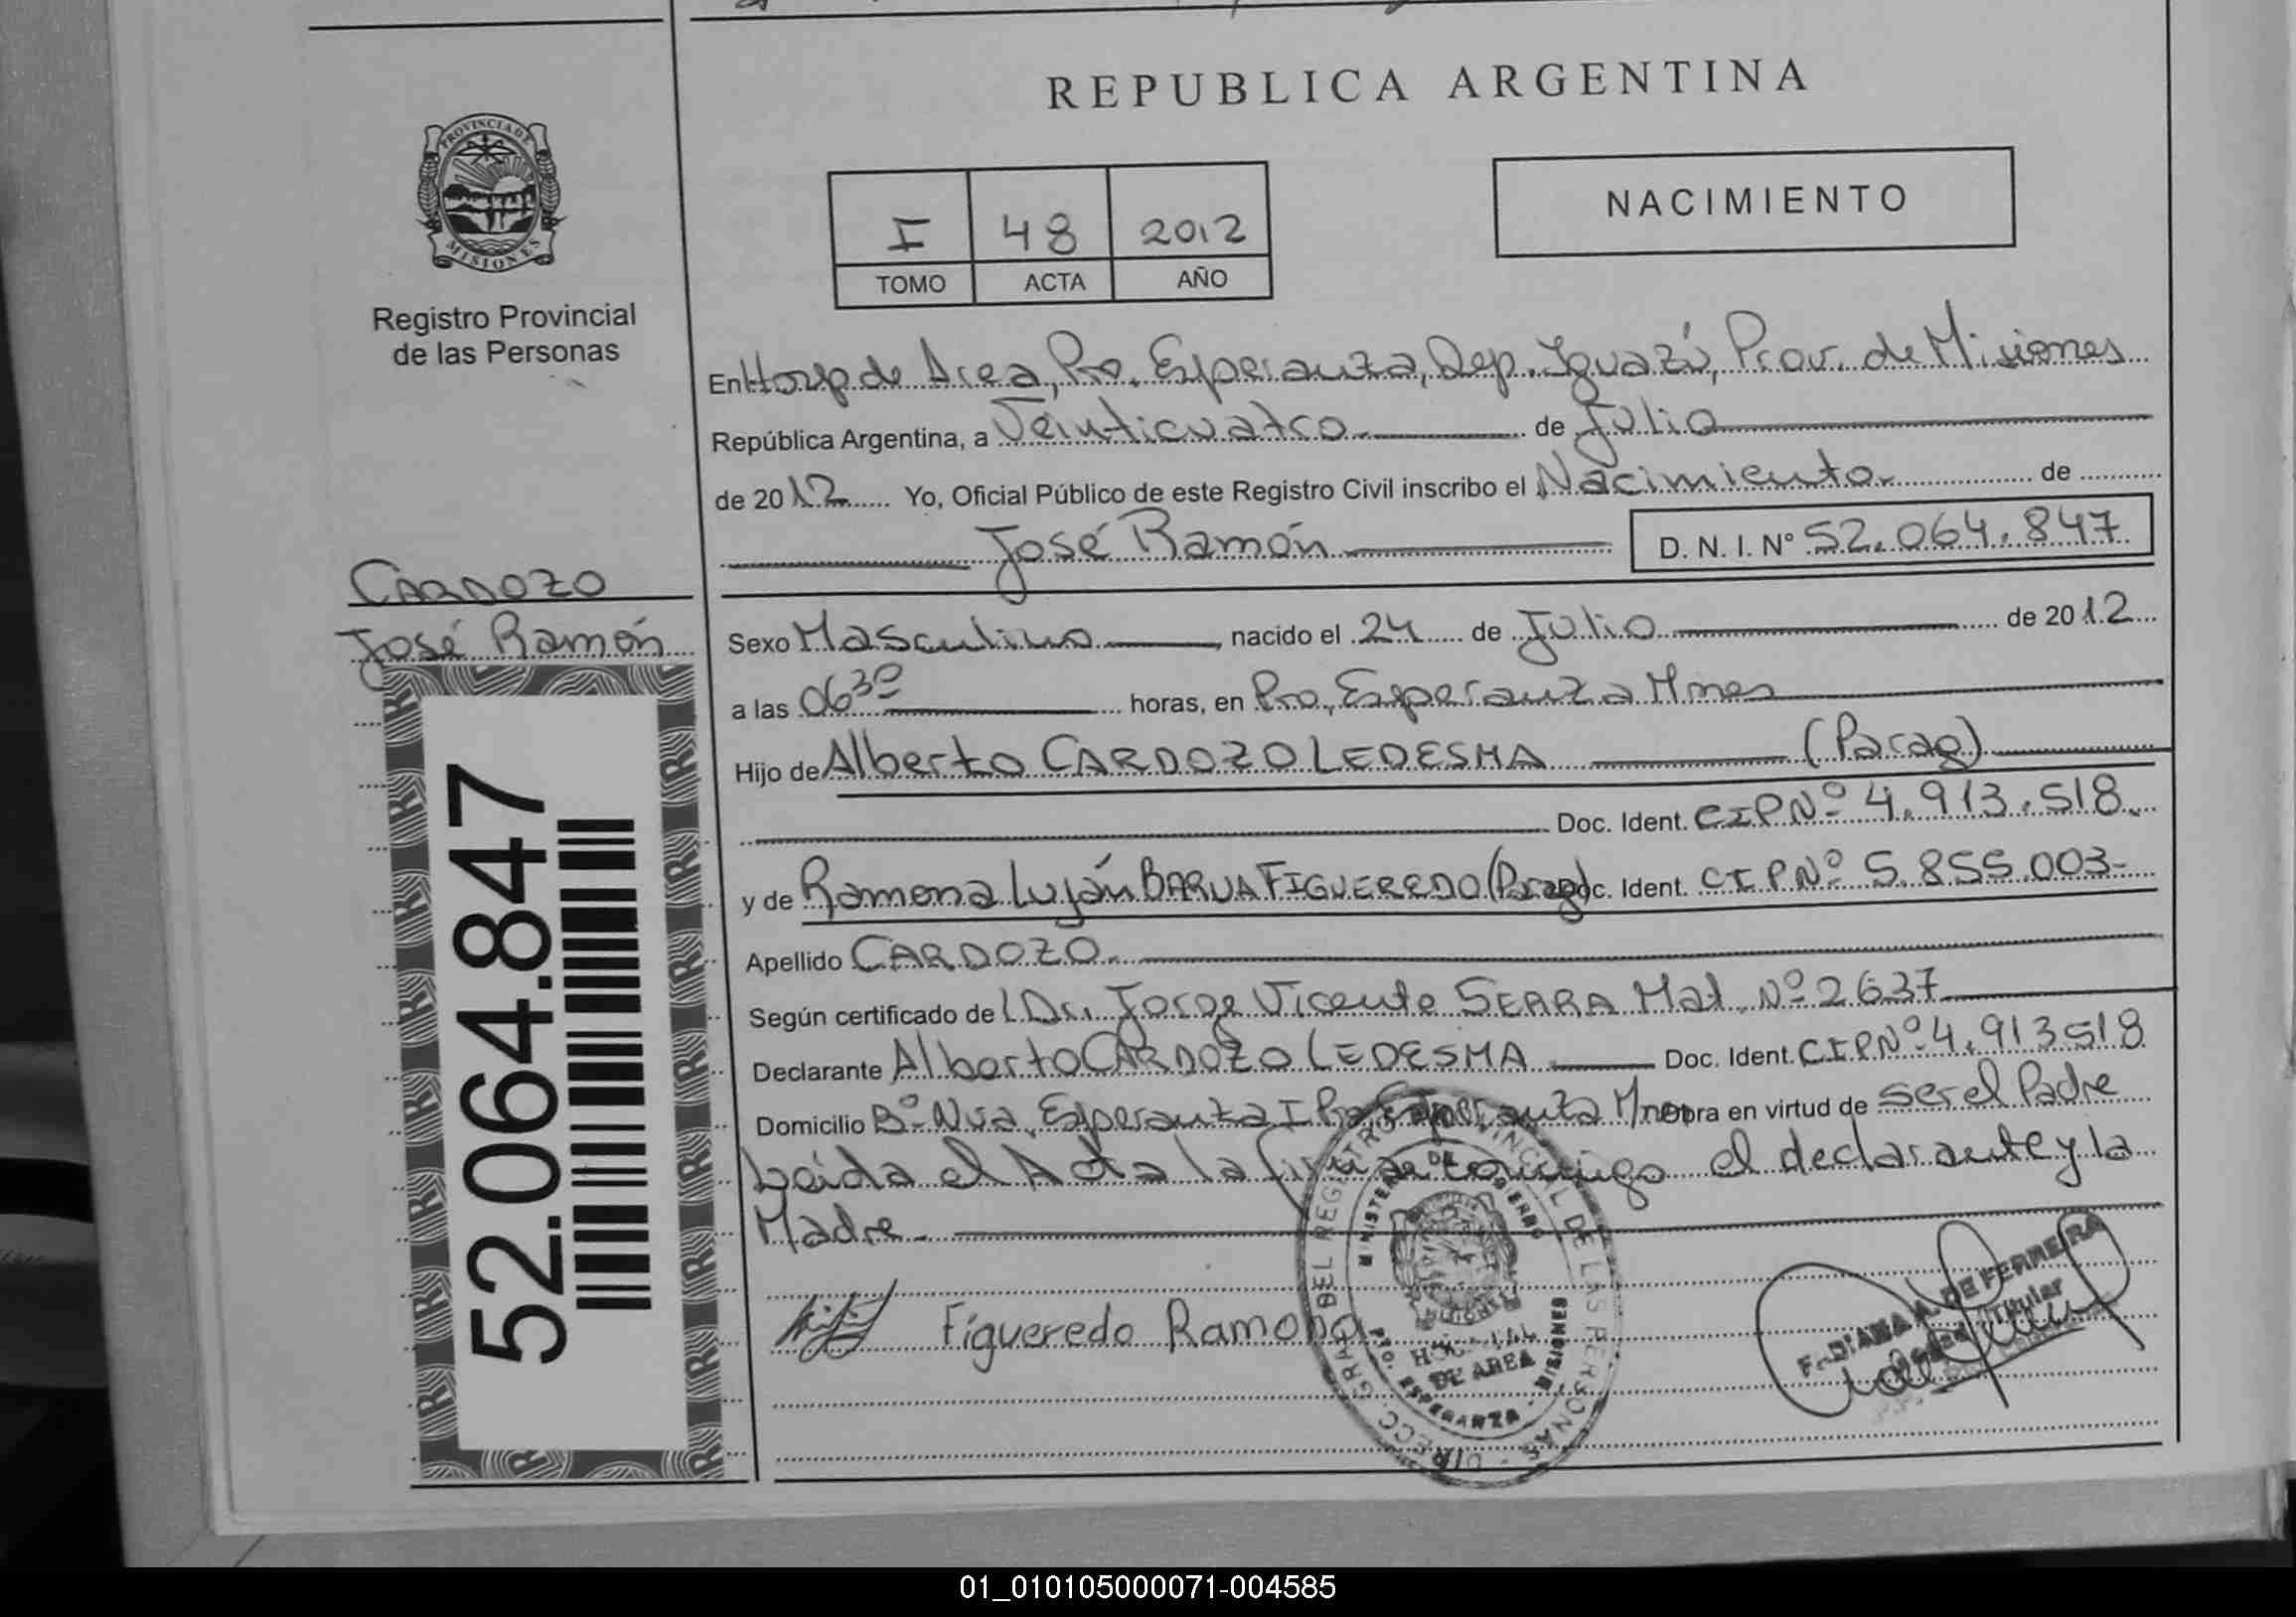 REPUBLICA ARGENTINA
PROVINCIA DE
MISIONES
Registro Provincial
de las Personas
I 48 2012
TOMO ACTA AÑO
NACIMIENTO
En Hosp de Area, Pto. Esperanza, Dep. Iguazú, Prov. de Misiones
República Argentina, a Veinticuatro de Julio
de 2012 Yo, Oficial Público de este Registro Civil inscribo el Nacimiento de
José Ramón D. N. I. Nº 52.064.847
CARDOZO
José Ramón
52.064.847
Sexo Masculino, nacido el 24 de Julio de 2012
a las 06 30 horas, en Pto. Esperanza Mnes
Hijo de Alberto CARDOZO LEDESMA (Parag)
Doc. Ident. CIPNº 4.913.518
y de Ramona Luján BARUA FIGUEREDO (Parag) Doc. Ident. CIPNº 5.855.003-
Apellido CARDOZO
Según certificado del Dr. Jorge Vicente SERRA Mat. Nº 2637
Declarante Alberto CARDOZO LEDESMA Doc. Ident. CIPNº 4.913518
Domicilio Bº Nva. Esperanza I Pto. Esperanza Mnes obra en virtud de ser el Padre
Leída el Acta la firman conmigo el declarante y la
Madre.
Figueredo Ramona
DIRECC. GRAL DEL REGISTRO PROVINCIAL DE LAS PERSONAS
MINISTERIO DE GOBIERNO
HOSPITAL
DE AREA
PTO. ESPERANZA - MISIONES
F. DIANA A. DE FERREIRA
Titular
01_010105000071-004585